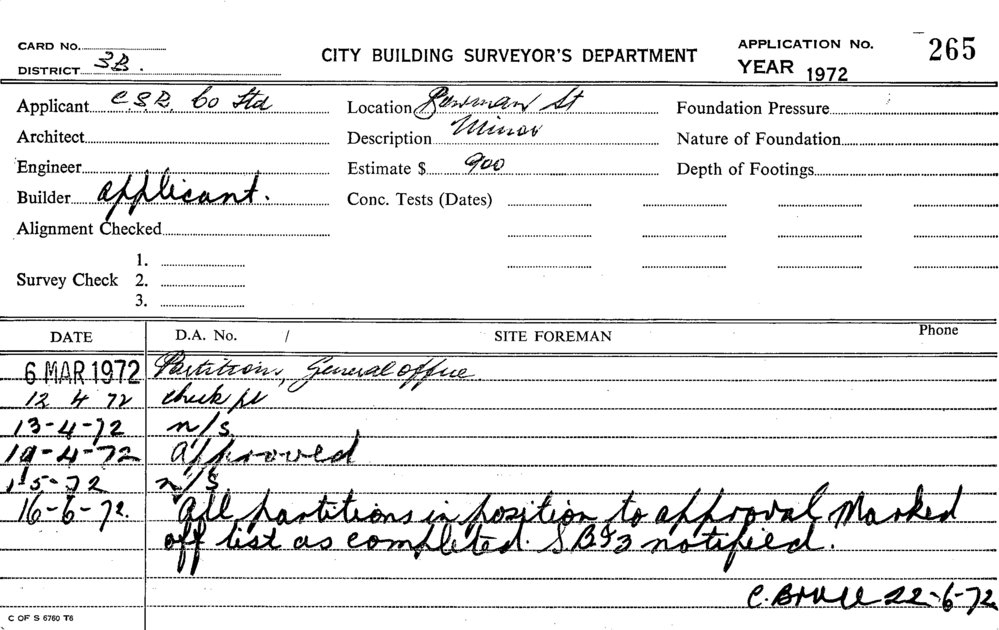 CARD No.
DISTRICT 3B.
CITY BUILDING SURVEYOR'S DEPARTMENT
APPLICATION No. 265
YEAR 1972
Applicant C.S.R. Co Ltd
Location Bowman St
Foundation Pressure
Architect
Description Minor
Nature of Foundation
Engineer
Estimate $ 900
Depth of Footings
Builder applicant.
Conc. Tests (Dates)
Alignment Checked
Survey Check
1.
2.
3.
DATE D.A. No. / SITE FOREMAN Phone
6 MAR 1972 Partition, General office
12 4 72 check
13-4-72 n/s
19-4-72 approved
15-72 n/s
16-6-72. All partitions in position to approval Marked
off list as completed. notified.
C. Bruce 22-6-72
C OF S 6760 T6